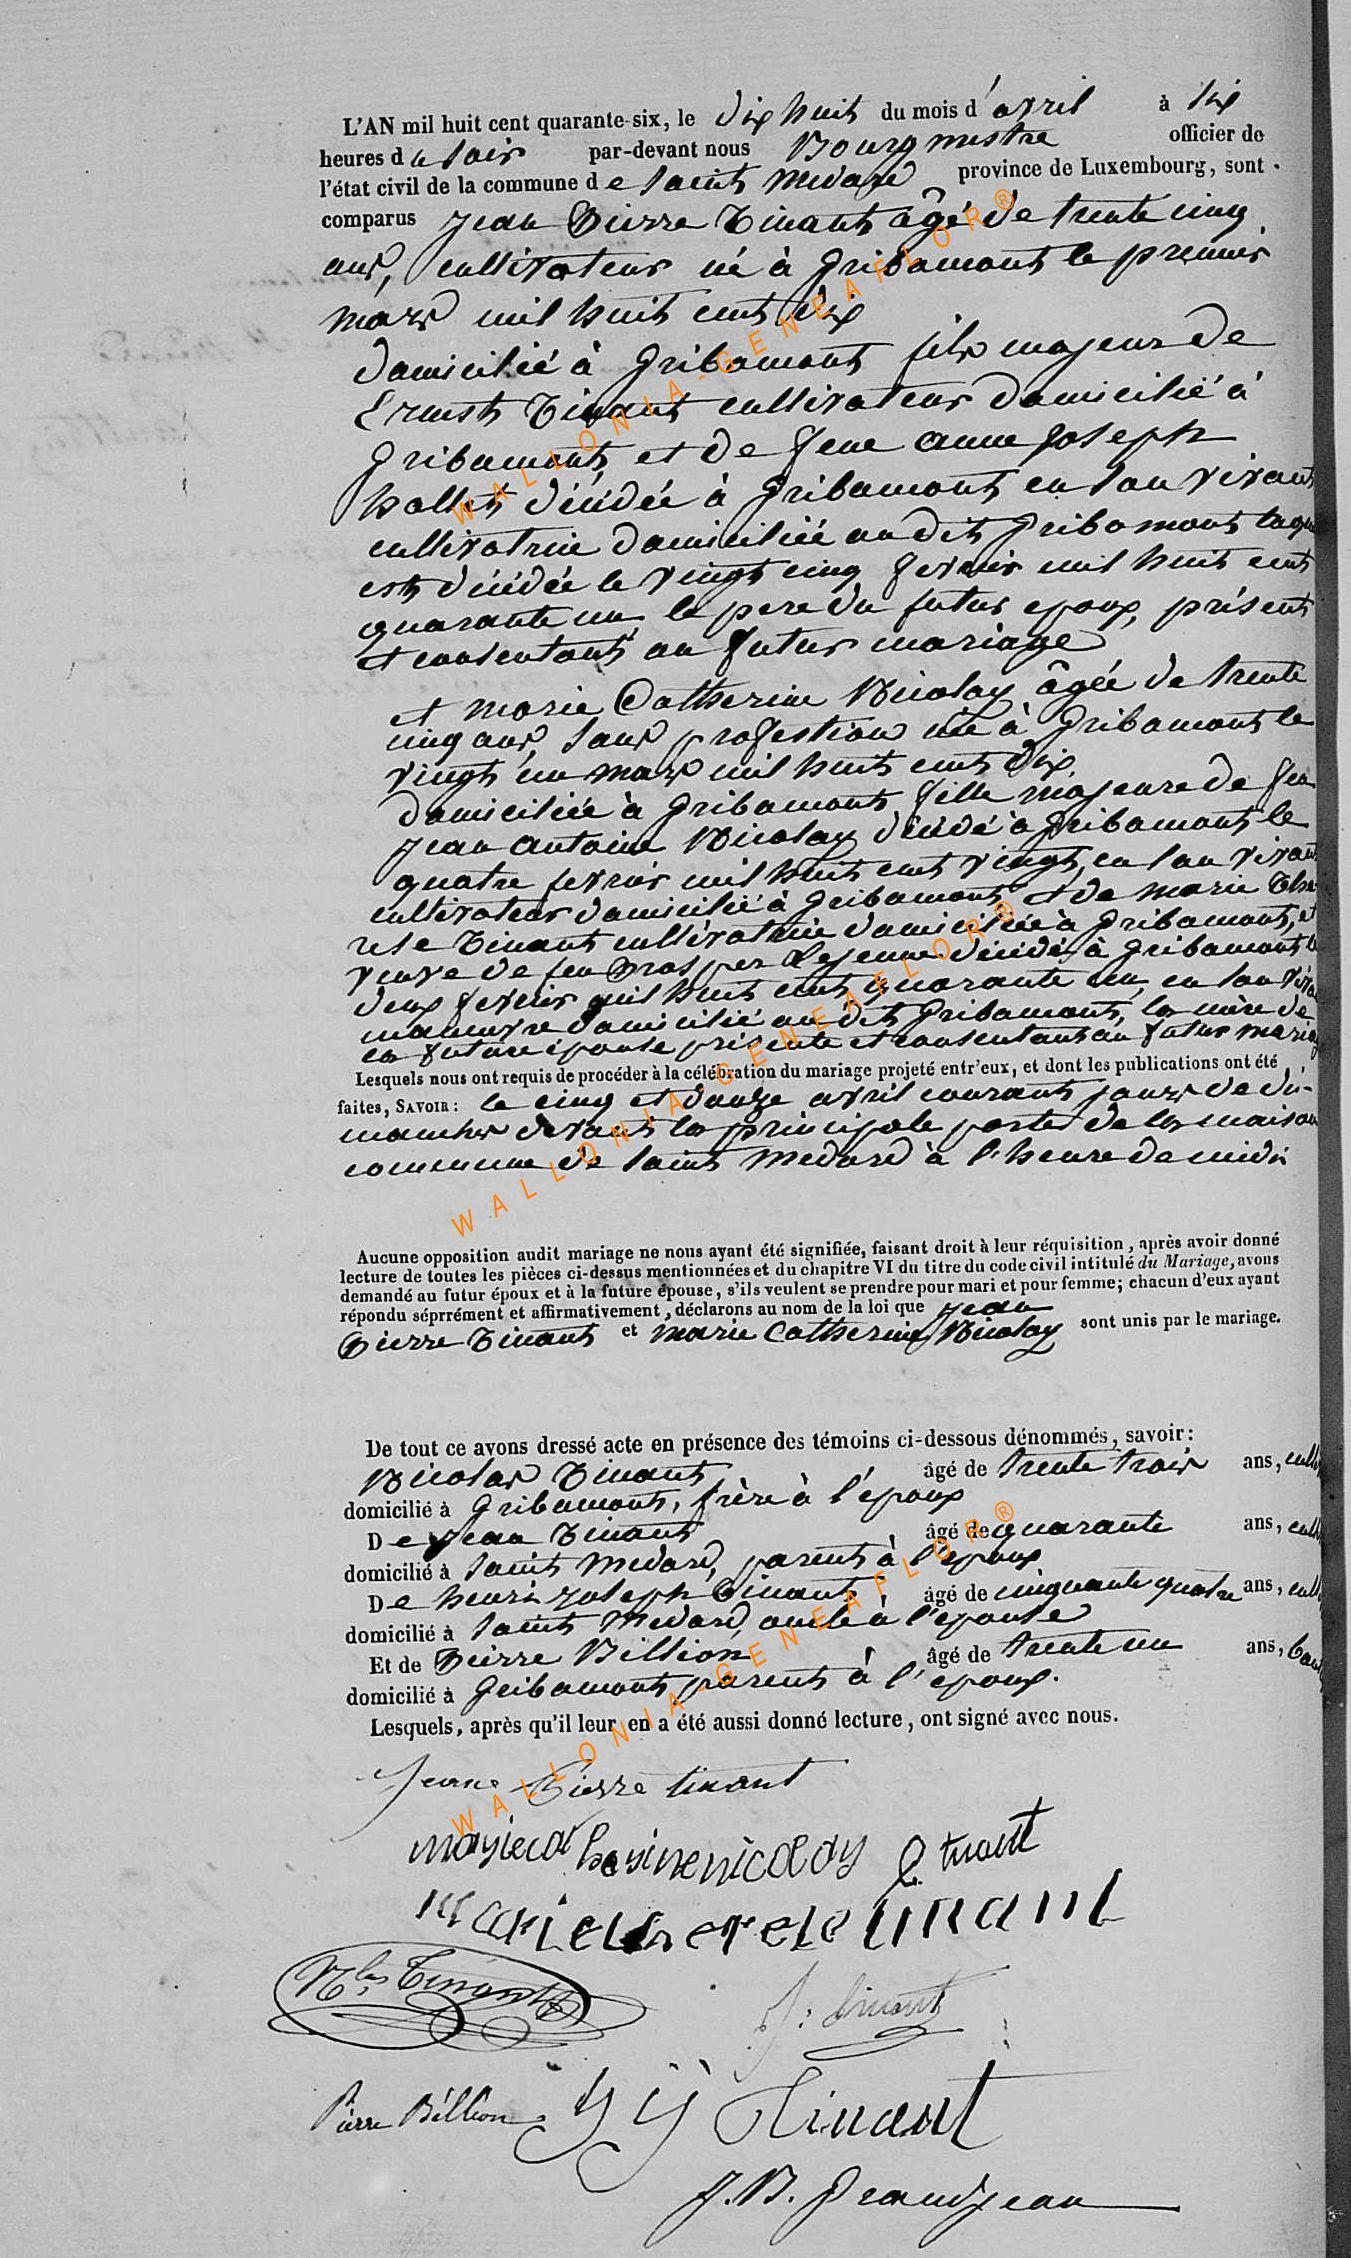 L'AN mil huit cent quarante-six, le dix huit du mois d'avril à six
heures du soir par-devant nous Bourgmestre officier de
l'état civil de la commune de Saint Médard province de Luxembourg, sont
comparus Jean Pierre Tinant âgé de trente cinq
ans, cultivateur né à Gribomont le premier
mars mil huit cent dix
domicilié à Gribomont fils majeur de
Ernest Tinant cultivateur domicilié à
Gribomont et de feue anne Joseph
décédée à Gribomont en son vivant
cultivatrice domiciliée au dit Gribomont
est décédée le vingt cinq fevrier mil huit cent
quarante un le pere du futur epoux, présent
et consentant au futur mariage
et Marie Catherine Nicolay âgée de trente
cinq ans, sans profession née à Gribomont le
vingt un mars mil huit cent dix
domiciliée à Gribomont fille majeure de feu
Jean antoine Nicolay décédé à Gribomont le
quatre fevrier mil huit cent vingt, en son vivant
cultivateur domicilié à Gribomont et de Marie Thé-
rese Tinant cultivatrice domiciliée à Gribomont, et
veuve de feu Prosper Lejeune décédé à Gribomont le
deux fevrier mil huit cent quarante un, en son viva
manœuvre domicilié au dit Gribomont, la mère de
la future épouse présente et consentant au futur mariag
Lesquels nous ont requis de procéder à la célébration du mariage projeté entr'eux, et dont les publications ont été
faites, SAVOIR : le cinq et douze avril courant jours de di-
manches devant la principale porte de la maison
commune de Saint Medard à l'heure de midi
Aucune opposition audit mariage ne nous ayant été signifiée, faisant droit à leur réquisition, après avoir donné
lecture de toutes les pièces ci-dessus mentionnées et du chapitre VI du titre du code civil intitulé du Mariage, avons
demandé au futur époux et à la future épouse, s'ils veulent se prendre pour mari et pour femme ; chacun d'eux ayant
répondu séprrément et affirmativement, déclarons au nom de la loi que Jean
Pierre Tinant et Marie Catherine Nicolay sont unis par le mariage.
De tout ce avons dressé acte en présence des témoins ci-dessous dénommés, savoir :
Nicolas Tinant âgé de trente trois ans, cult
domicilié à Gribomont, frère à l'époux
De Jean Tinant âgé de quarante ans, cult
domicilié à Saint Medard, parent à l'epoux
De henri Joseph Tinant âgé de cinquante quatre ans, cult
domicilié à Saint Medard, oncle à l'epouse
Et de Pierre Billion âgé de trente un ans,
domicilié à Gribomont parent à l'epoux.
Lesquels, après qu'il leur en a été aussi donné lecture, ont signé avec nous.
Jean Pierre tinant
mariecatherinenicolay E tinant
Marie therese tinant
Nlas Tinant J: tinant
Pierre Billion hj Tinant
J.B. Grandjean
WALLONIA-GENEAFLOR®
WALLONIA-GENEAFLOR®
WALLONIA-GENEAFLOR®